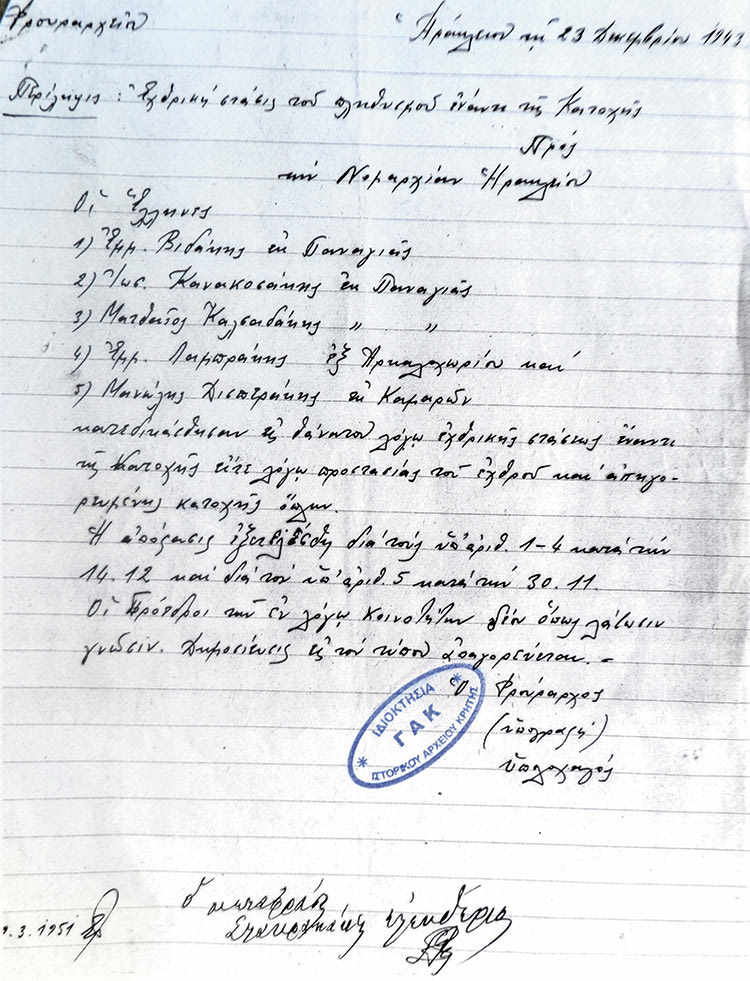 Φρουραρχεῖον
Ἡράκλειον τῇ 23 Δεκεμβρίου 1943
Περίληψις : Ἐχθρική στάσις τοῦ πληθυσμοῦ ἔναντι τῆς Κατοχῆς
Πρός
τήν Νομαρχίαν Ἡρακλείου
Οἱ Ἕλληνες
1) Ἐμμ. Βιδάκης ἐκ Παναγιᾶς
2) Ἰωσ. Κανακουσάκης ἐκ Παναγιᾶς
3) Ματθαῖος Καλσαδάκης " "
4) Ἐμμ. Λαμπράκης ἐξ Ἀρκαλοχωρίου καί
5) Μανώλης Δισπεράκης ἐκ Καμαρῶν
κατεδικάσθησαν εἰς θάνατον λόγῳ ἐχθρικῆς στάσεως ἔναντι
τῆς Κατοχῆς εἴτε λόγῳ προστασίας τοῦ ἐχθροῦ καί ἀπηγο-
ρευμένης κατοχῆς ὅπλων.
Ἡ ἀπόφασις ἐξετελέσθη διά τούς ὑπ' ἀριθ. 1-4 κατά τήν
14.12 καί διά τόν ὑπ' ἀριθ. 5 κατά τήν 30.11.
Οἱ Πρόεδροι τῶν ἐν λόγῳ Κοινοτήτων δέον ὅπως λάβωσιν
γνῶσιν. Δημοσίευσις εἰς τόν τύπον ἀπαγορεύεται. -
Ὁ Φρούραρχος
(ὑπογραφή)
ὑπολοχαγός
* ΙΔΙΟΚΤΗΣΙΑ *
ΓΑΚ
ΙΣΤΟΡΙΚΟΥ ΑΡΧΕΙΟΥ ΚΡΗΤΗΣ
.3.1951